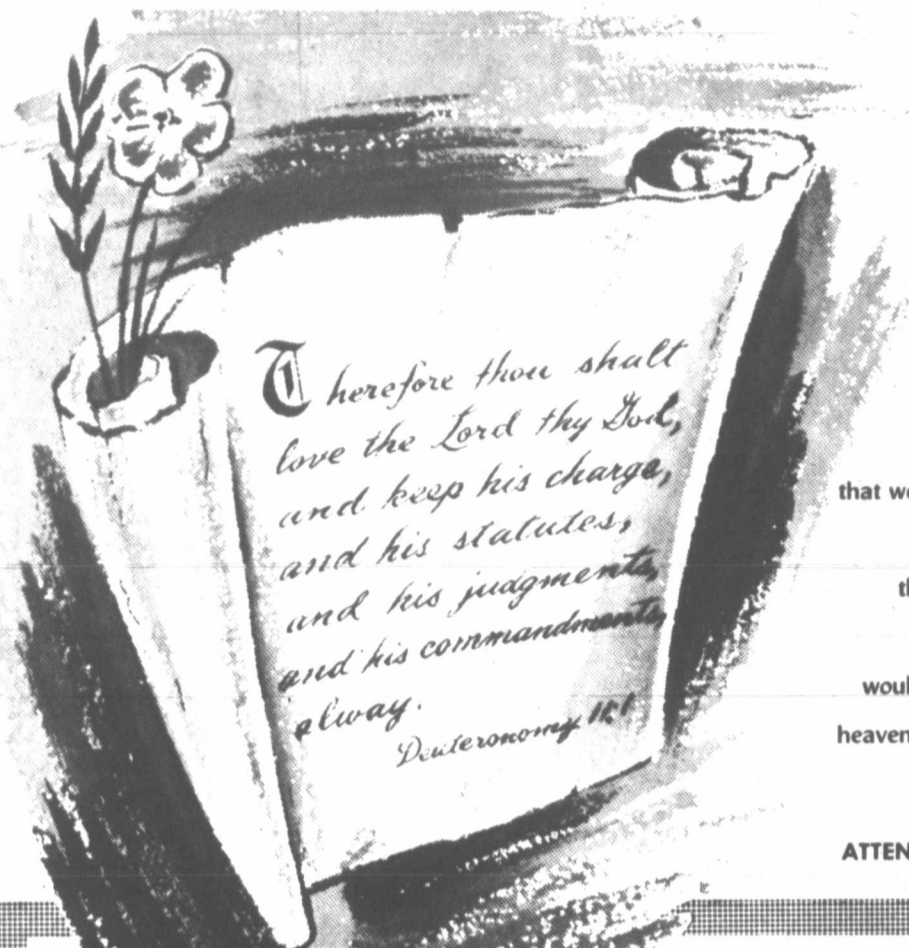 Therefore thou shalt
love the Lord thy God,
and keep his charge,
and his statutes,
and his judgments,
and his commandments,
alway.
Deuteronomy 11:1
that we
would
heaven
ATTEN